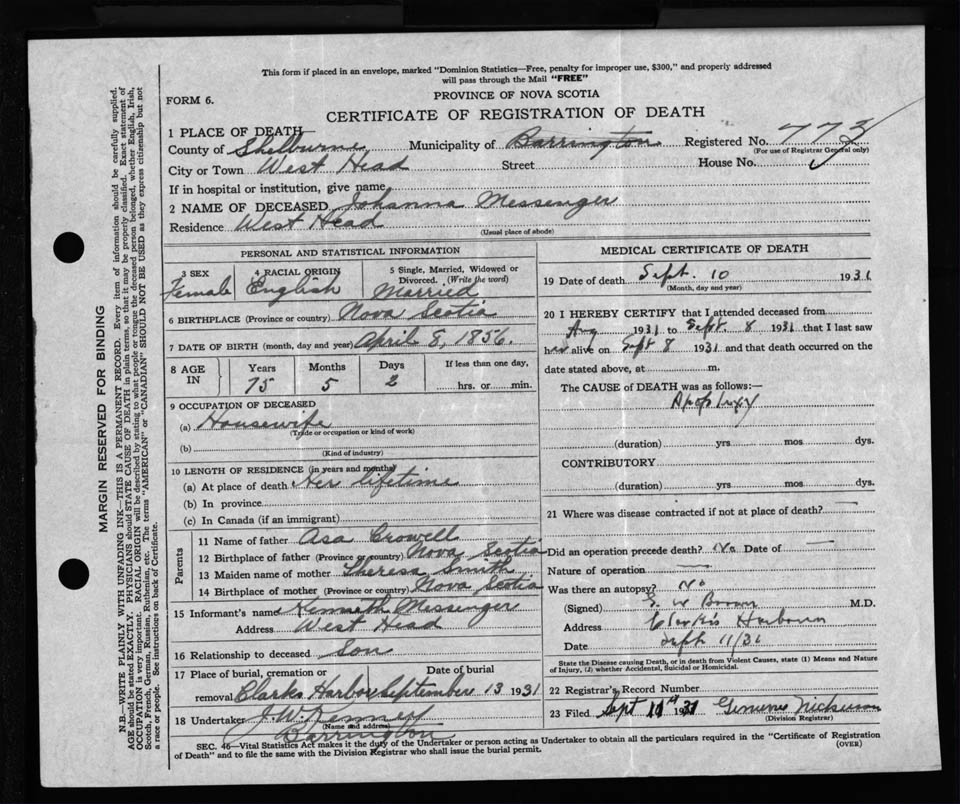 This form if placed in an envelope, marked "Dominion Statistics—Free, penalty for improper use, $300," and properly addressed
will pass through the Mail "FREE"
PROVINCE OF NOVA SCOTIA
FORM 6.
CERTIFICATE OF REGISTRATION OF DEATH
1 PLACE OF DEATH
County of Shelburne Municipality of Barrington Registered No. 773
(For use of Registrar General only)
City or Town West Head Street House No.
If in hospital or institution, give name
2 NAME OF DECEASED Johanna Messenger
Residence West Head
(Usual place of abode)
PERSONAL AND STATISTICAL INFORMATION
3 SEX 4 RACIAL ORIGIN 5 Single, Married, Widowed or Divorced. (Write the word)
Female English Married
6 BIRTHPLACE (Province or country) Nova Scotia
7 DATE OF BIRTH (month, day and year) April 8, 1856.
8 AGE IN Years Months Days If less than one day,
75 5 2 hrs. or min.
9 OCCUPATION OF DECEASED
(a) Housewife
(Trade or occupation or kind of work)
(b)
(Kind of industry)
10 LENGTH OF RESIDENCE (in years and months)
(a) At place of death Her lifetime
(b) In province
(c) In Canada (if an immigrant)
Parents
11 Name of father Asa Crowell
12 Birthplace of father (Province or country) Nova Scotia
13 Maiden name of mother Theresa Smith
14 Birthplace of mother (Province or country) Nova Scotia
15 Informant's name Kenneth Messenger
Address West Head
16 Relationship to deceased Son
17 Place of burial, cremation or Date of burial
removal Clarks Harbor September 13 1931
18 Undertaker J. W. Kenney
(Name and address)
Barrington
MEDICAL CERTIFICATE OF DEATH
19 Date of death Sept. 10 1931
(Month, day and year)
20 I HEREBY CERTIFY that I attended deceased from
Aug 1931 to Sept 8 1931 that I last saw
her alive on Sept 8 1931 and that death occurred on the
date stated above, at m.
The CAUSE of DEATH was as follows:—
Apoplexy
(duration) yrs mos dys.
CONTRIBUTORY
(duration) yrs. mos. dys.
21 Where was disease contracted if not at place of death? —
Did an operation precede death? No Date of —
Nature of operation —
Was there an autopsy? No
(Signed) M.D.
Address Clark's Harbour
Date Sept 11/31
State the Disease causing Death, or in death from Violent Causes, state (1) Means and Nature
of Injury, (2) whether Accidental, Suicidal or Homicidal.
22 Registrar's Record Number
23 Filed Sept 1931 Nickerson
(Division Registrar)
SEC. 46—Vital Statistics Act makes it the duty of the Undertaker or person acting as Undertaker to obtain all the particulars required in the "Certificate of Registration
of Death" and to file the same with the Division Registrar who shall issue the burial permit. (OVER)
MARGIN RESERVED FOR BINDING
N.B.—WRITE PLAINLY WITH UNFADING INK—THIS IS A PERMANENT RECORD. Every item of information should be carefully supplied.
AGE should be stated EXACTLY. PHYSICIANS should STATE CAUSE OF DEATH in plain terms, so that it may be properly classified. Exact statement of
OCCUPATION is very important. RACIAL ORIGIN will be described by stating to what people or tongue the deceased person belonged, whether English, Irish,
Scotch, French, German, Russian, Ruthenian, etc. The terms "AMERICAN" or "CANADIAN" SHOULD NOT BE USED as they express citizenship but not
a race or people. See instructions on back of Certificate.